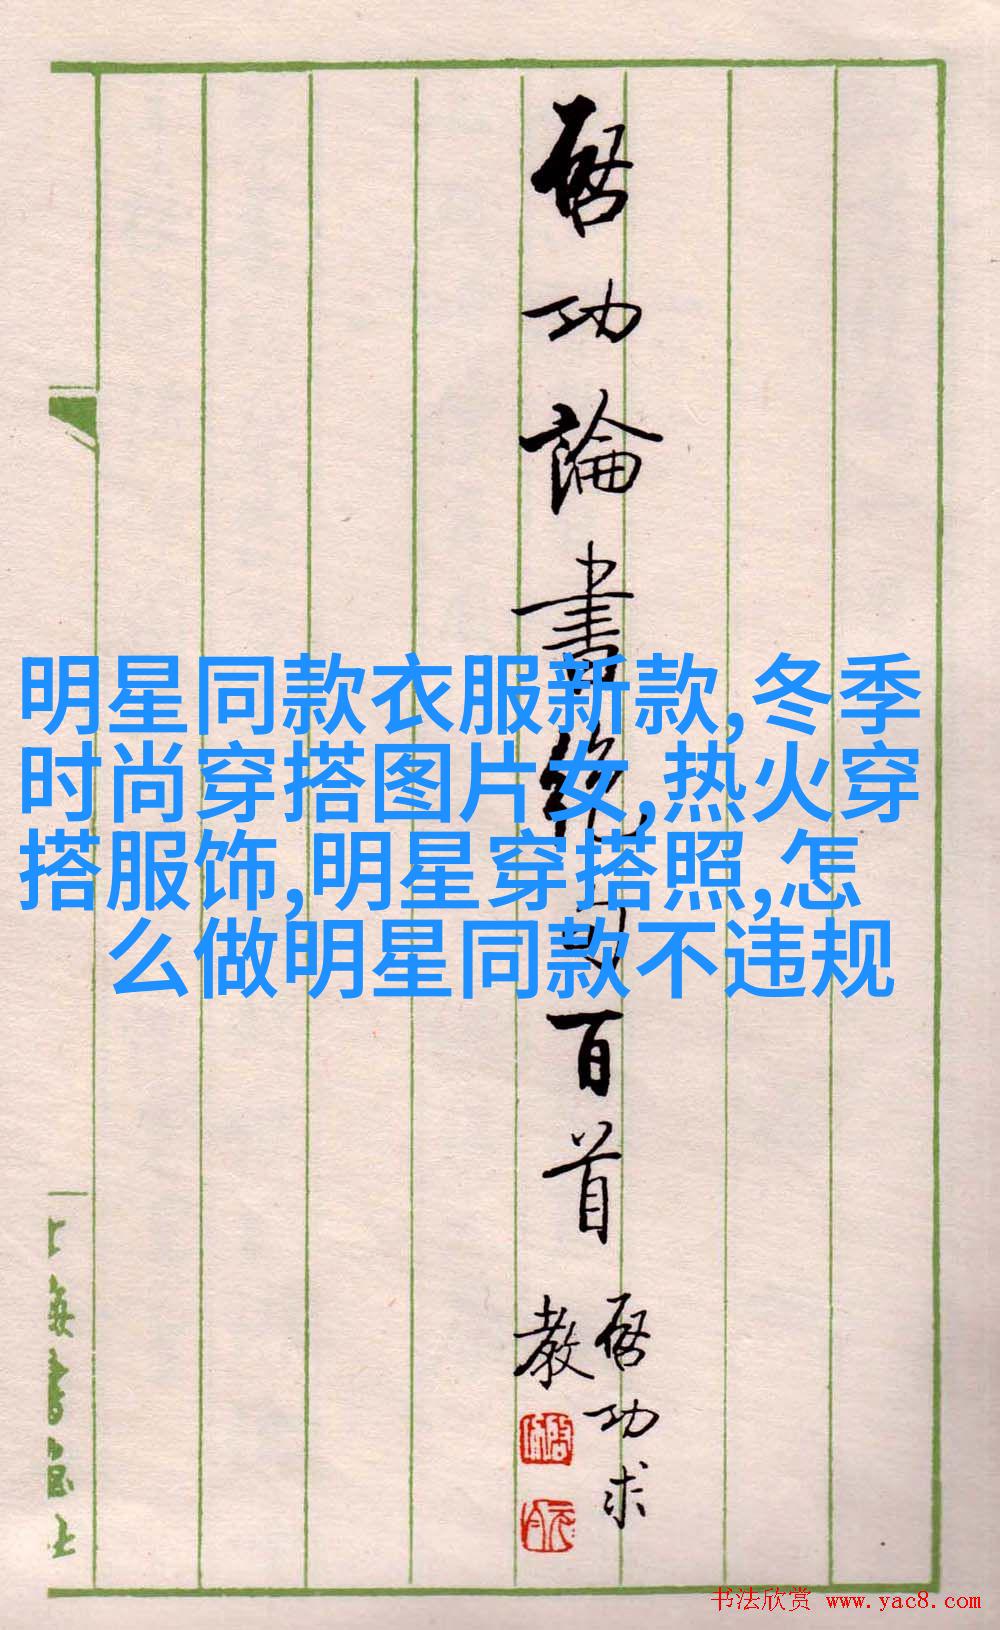 啓功論書絕句百首
啓功求
教
明星同款衣服新款,冬季
时尚穿搭图片女,热火穿
搭服饰,明星穿搭照,怎
么做明星同款不违规
上海書畫社
书法欣赏 www.yac8.com